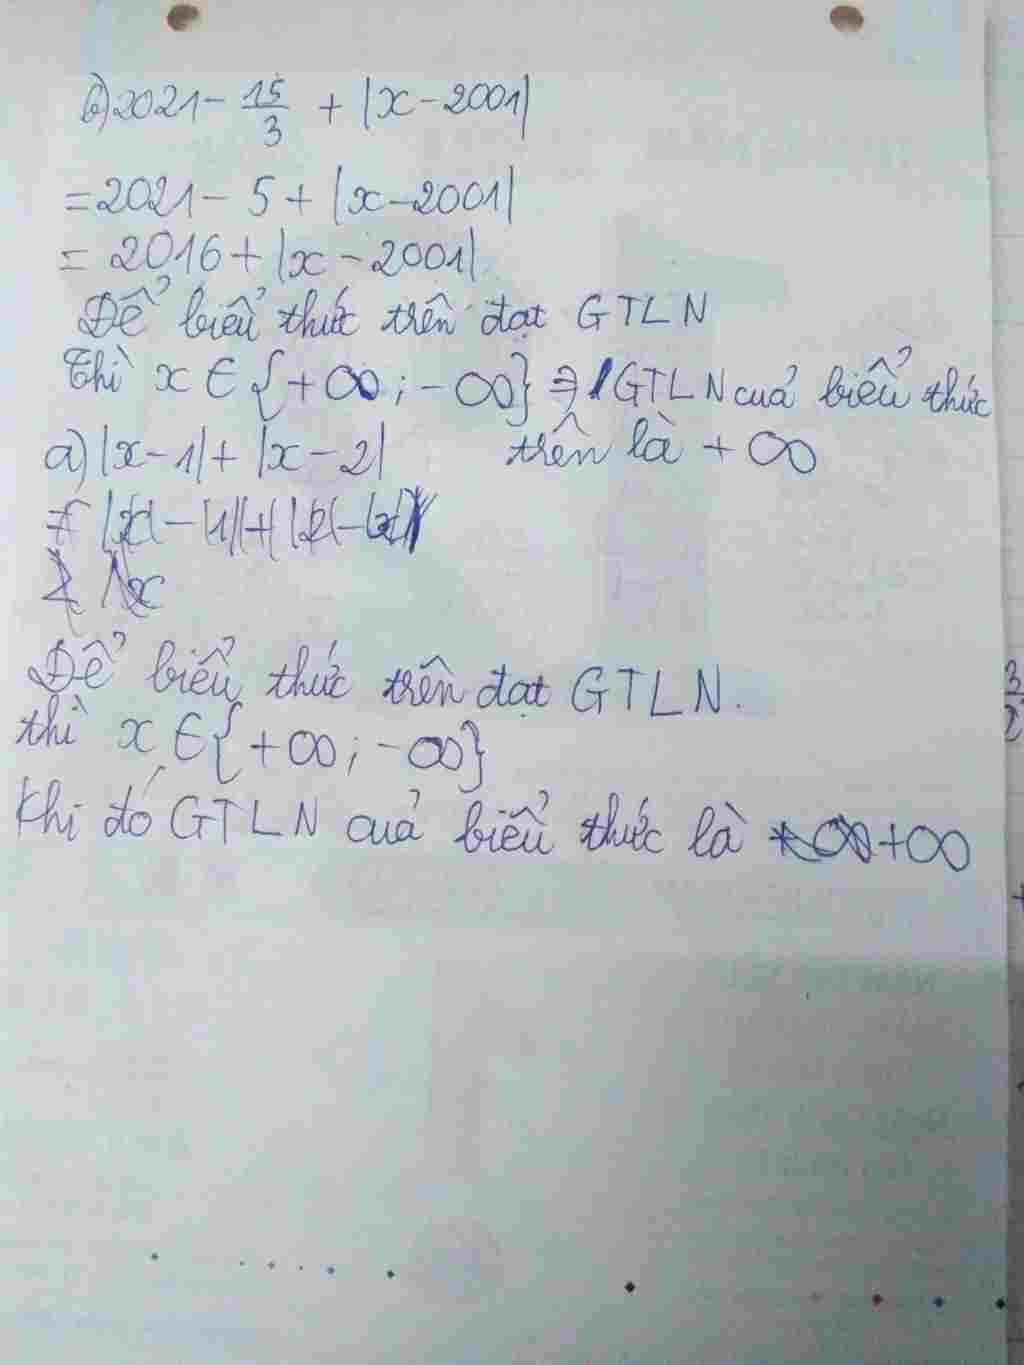 b) 2021 - 15/3 + |x - 2001|
= 2021 - 5 + |x - 2001|
= 2016 + |x - 2001|
Để biểu thức trên đạt GTLN
Thì x ∈ {+∞; -∞} ⇒ GTLN cuả biểu thức
trên là +∞
a) |x - 1| + |x - 2|
Để biểu thức trên đạt GTLN.
thì x ∈ {+∞; -∞}
Khi đó GTLN cuả biểu thức là +∞
3
2